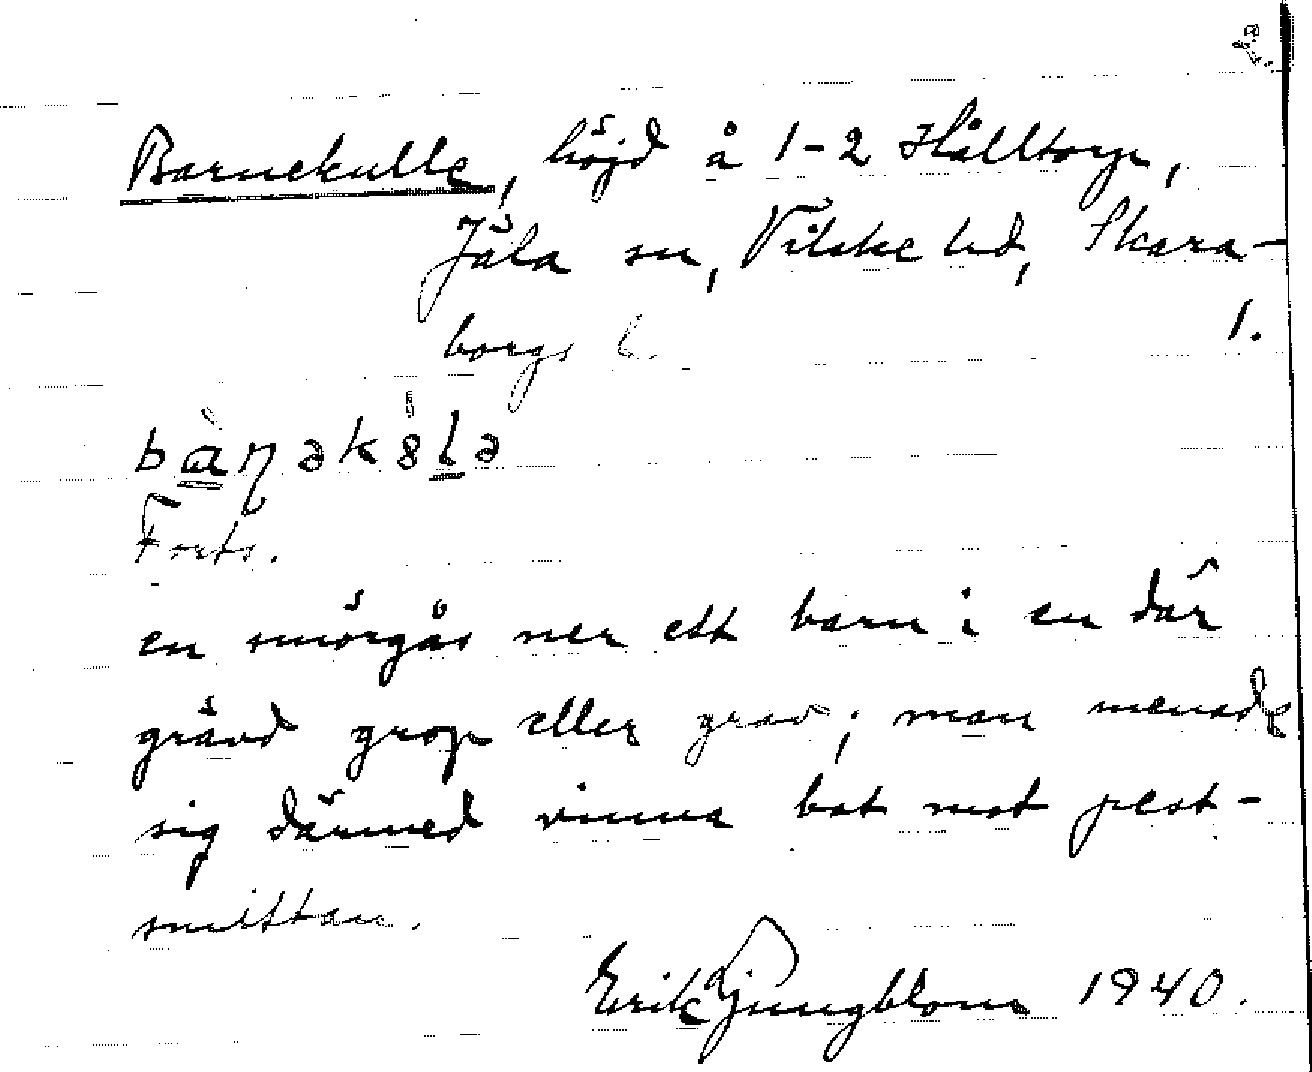 Barnekulle, höjd å 1-2 Hålltorp,
Jäla sn, Vilske hd, Skara-
borgs l. 1.
bànək8lə
Forts.
en smörgås ner ett barn i en där
grävd grop eller grav; man menade
sig därmed vinna bot mot pest-
smittan.
Erik Ljungblom 1940.